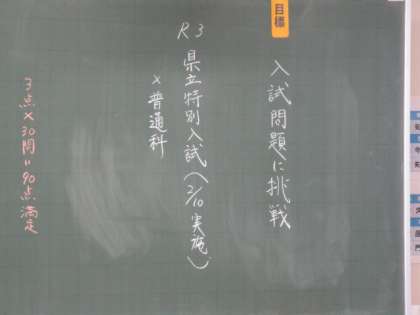 目標
入試問題に挑戦
R3
県立特別入試(2/10実施)
×普通科
3点×30問=90点満点